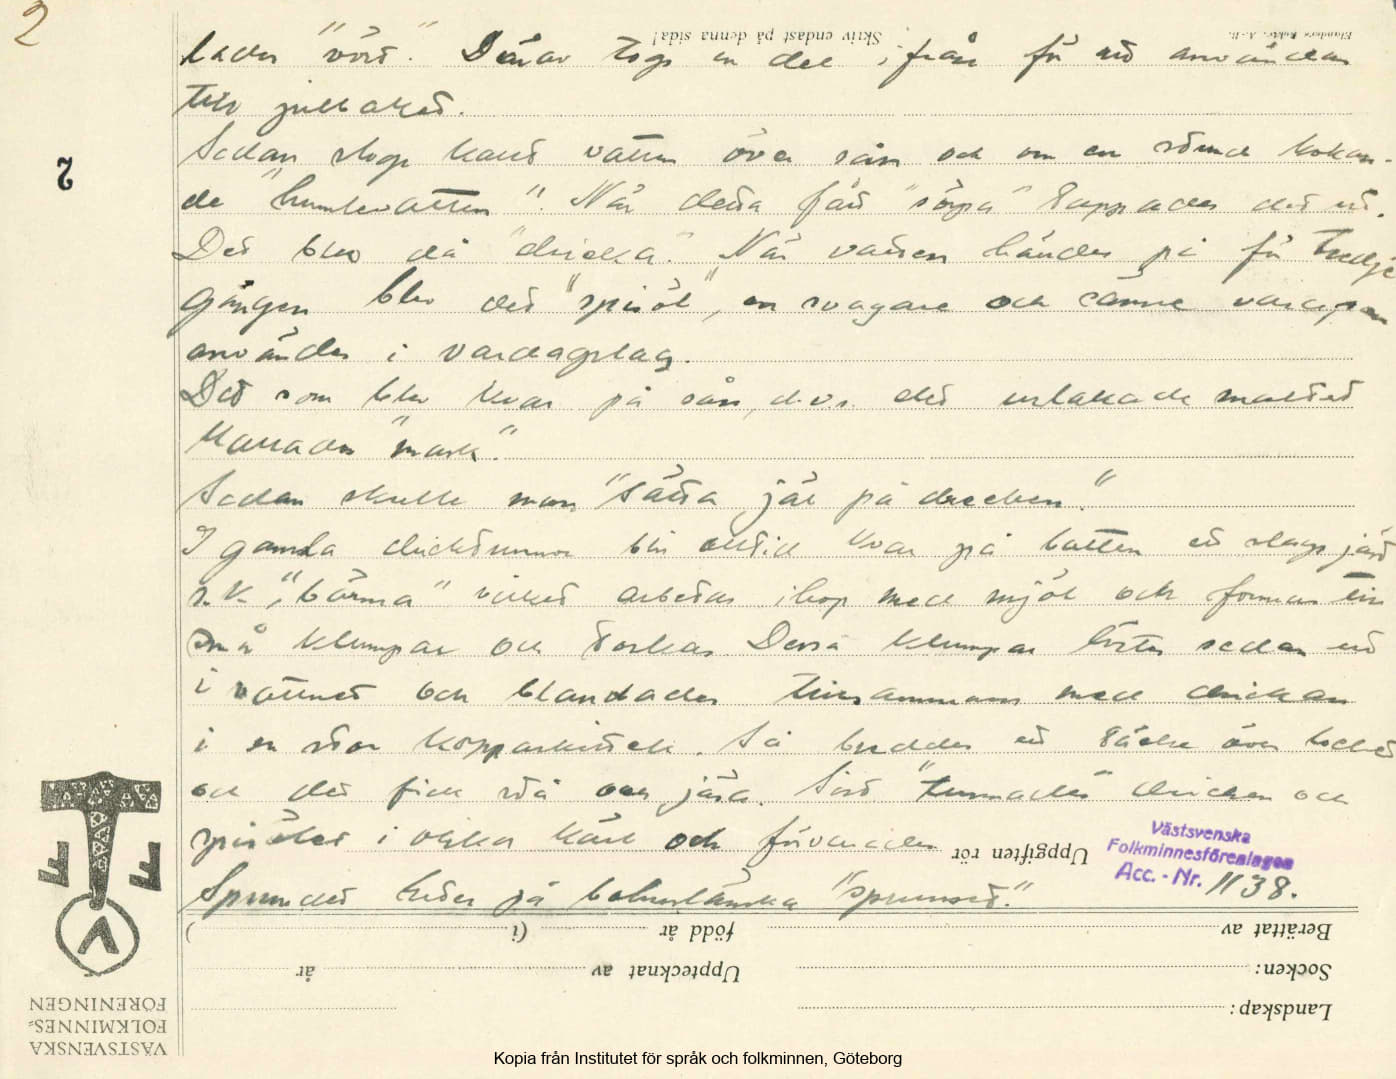 2
lades "vört". Därav togs en del ifrån för att användas
till julbaket.
Sedan slogs kallt vatten över sån och om en stund kokan-
de "humlevatten". När detta fått "sörpa" tappades det ut.
Det blev då "dricka". När vatten händes på för tredje
gången blev det "spisöl", en svagare och sämre variant som
användes i vardagslag.
Det som blev kvar på sån, d.v.s. det urlakade maltet
kallades "mask".
Sedan skulle man "sätta jäl på drecken."
I gamla drickstunnor blir alltid kvar på botten ett slags jäst
s.k. "bärma" vilket arbetas ihop med mjöl och formas till
små klumpar och torkas. Dessa klumpar löstes sedan ut
i vattnet och blandades tillsammans med drickan
i en stor kopparkittel. Så breddes ett täcke över locket
och det fick stå och jäsa. Sist "tunnades" drickan och
spisölet i olika kärl och förvarades
Sprundet heter på bohuslänska "sprunset."
Skriv endast på denna sida!
2
Västsvenska
Folkminnesföreningen
Acc. - Nr. 1138.
Uppgiften rör
Berättat av
född år
(i
)
Socken:
Upptecknat av
år
Landskap:
VÄSTSVENSKA
FOLKMINNES-
FÖRENINGEN
Kopia från Institutet för språk och folkminnen, Göteborg